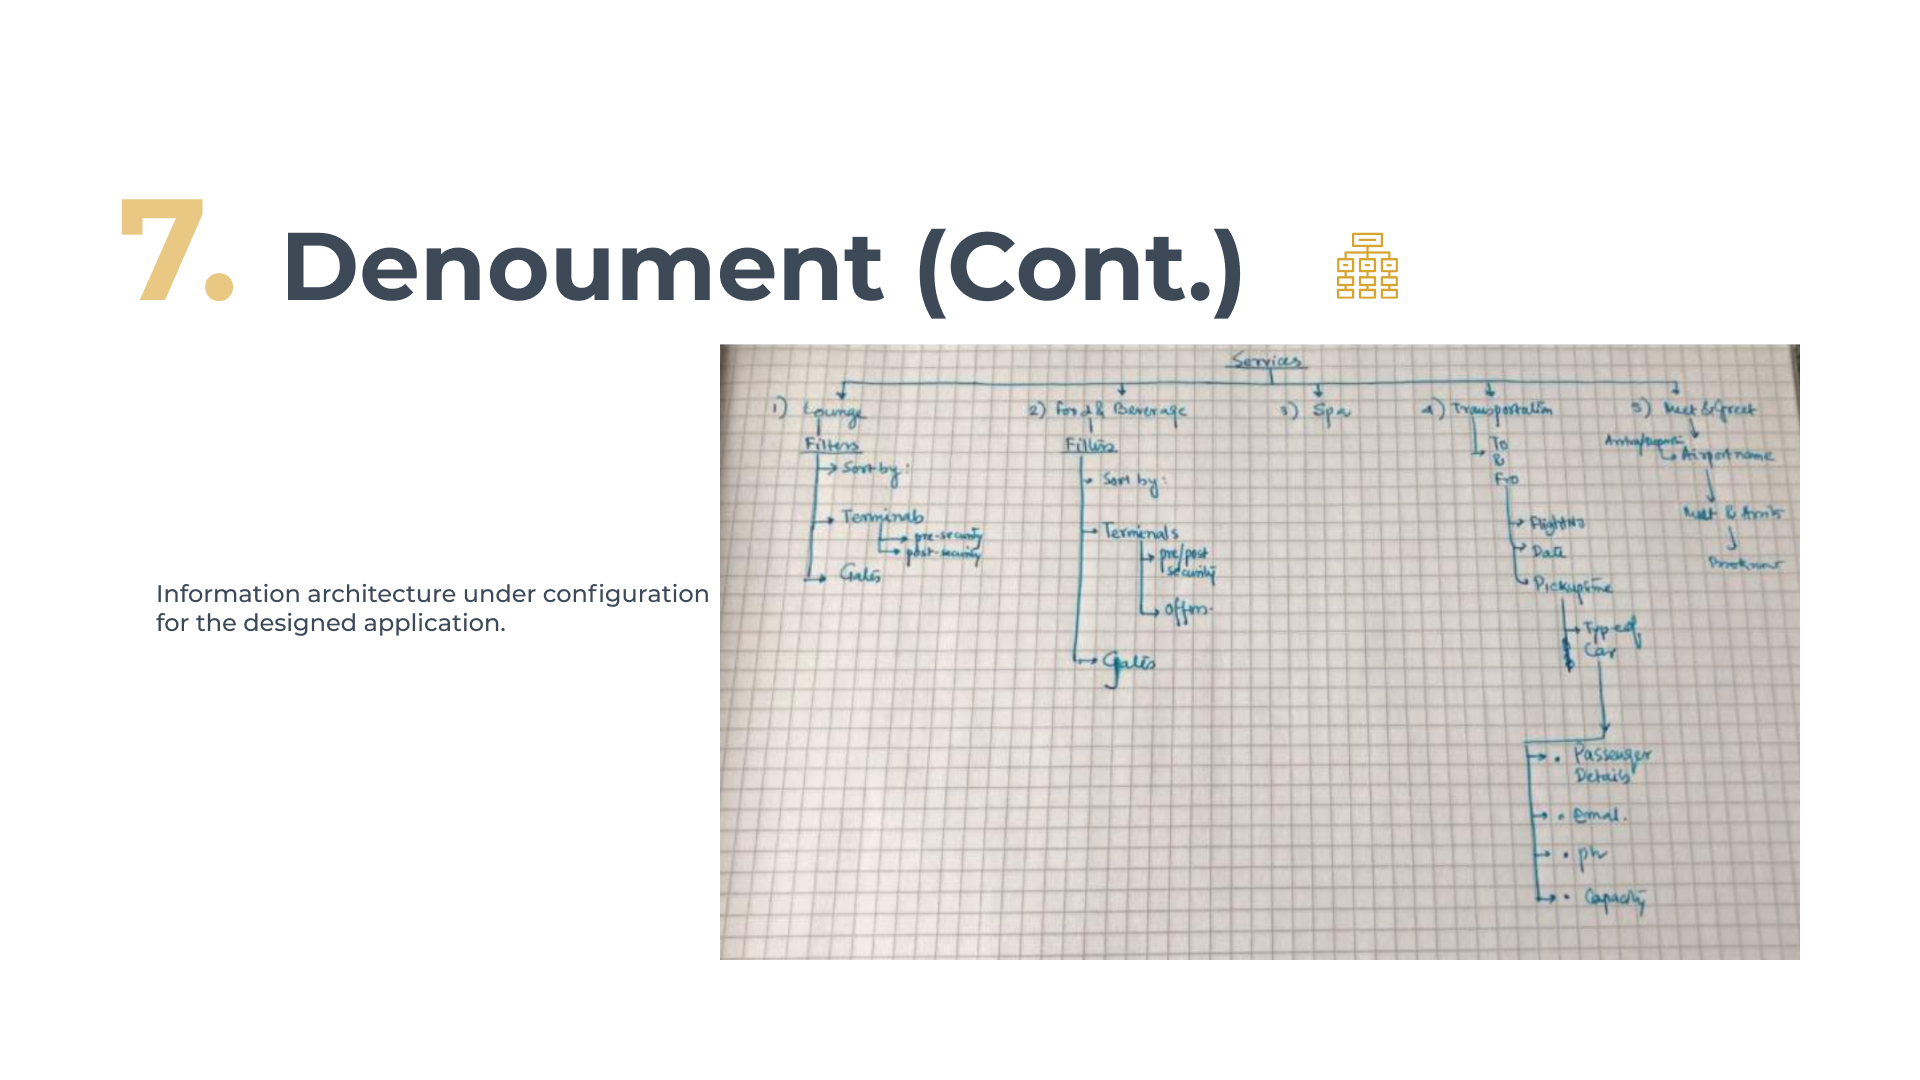 7. Denoument (Cont.)
Information architecture under configuration
for the designed application.
Services
1) Lounge
Filters
Sort by:
Terminals
pre-security
post-security
Gates
2) Food & Beverage
Filters
Sort by:
Terminals
pre/post
security
offers.
Gates
3) Spa
4) Transportation
To
&
Fro
Flight No
Date
Pickup time
Type of
Car
• Passenger
Details
• email.
• ph
• Capacity
5) Meet & Greet
Airport name
Meet &